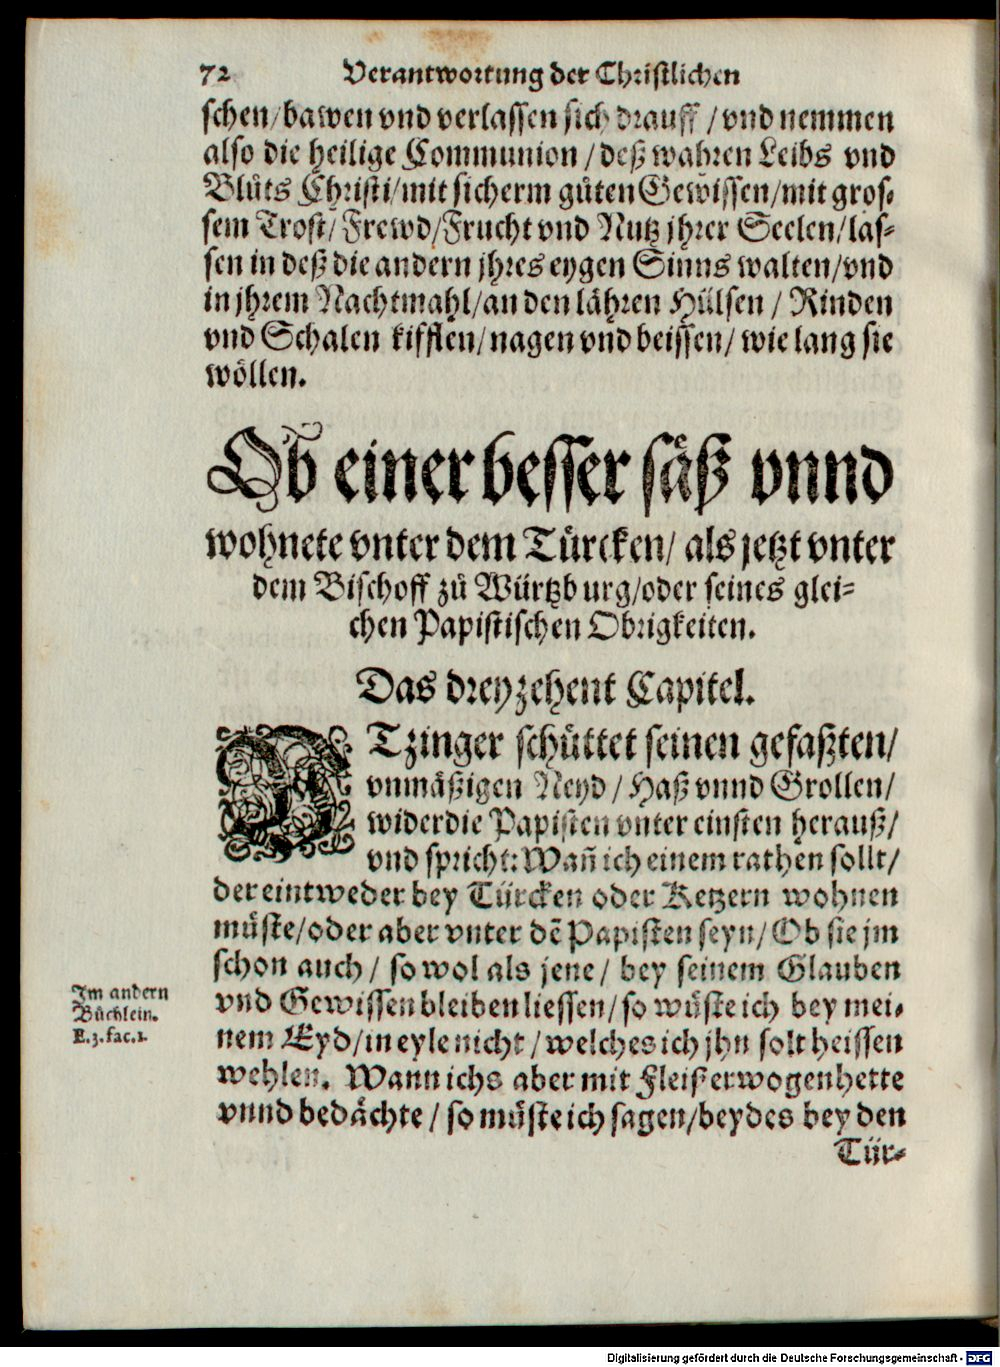 72 Verantwortung der Christlichen
schen/bawen vnd verlassen sich drauff/vnd nemmen
also die heilige Communion/deß wahren Leibs vnd
Blůts Christi/mit sicherm gůten Gewissen/mit gros-
sem Trost/Frewd/Frucht vnd Nutz jhrer Seelen/las-
sen in deß die andern jhres eygen Sinns walten/vnd
in jhrem Nachtmahl/an den lähren Hülsen/Rinden
vnd Schalen kifflen/nagen vnd beissen/wie lang sie
wöllen.
Ob einer besser säß vnnd
wohnete vnter dem Türcken/als jetzt vnter
dem Bischoff zů Würtzburg/oder seines glei-
chen Papistischen Obrigkeiten.
Das dreyzehent Capitel.
DTzinger schüttet seinen gefaßten/
vnmäßigen Neyd/Haß vnnd Grollen/
wider die Papisten vnter einsten herauß/
vnd spricht: Wañ ich einem rathen sollt/
der eintweder bey Türcken oder Ketzern wohnen
můste/oder aber vnter dẽ Papisten seyn/Ob sie jm
schon auch/so wol als jene/bey seinem Glauben
vnd Gewissen bleiben liessen/so wůste ich bey mei-
nem Eyd/in eyle nicht/welches ich jhn solt heissen
wehlen. Wann ichs aber mit Fleiß erwogen hette
vnnd bedächte/so můste ich sagen/beydes bey den
Tür-
Im andern
Büchlein.
E.3.fac.1.
Digitalisierung gefördert durch die Deutsche Forschungsgemeinschaft - DFG